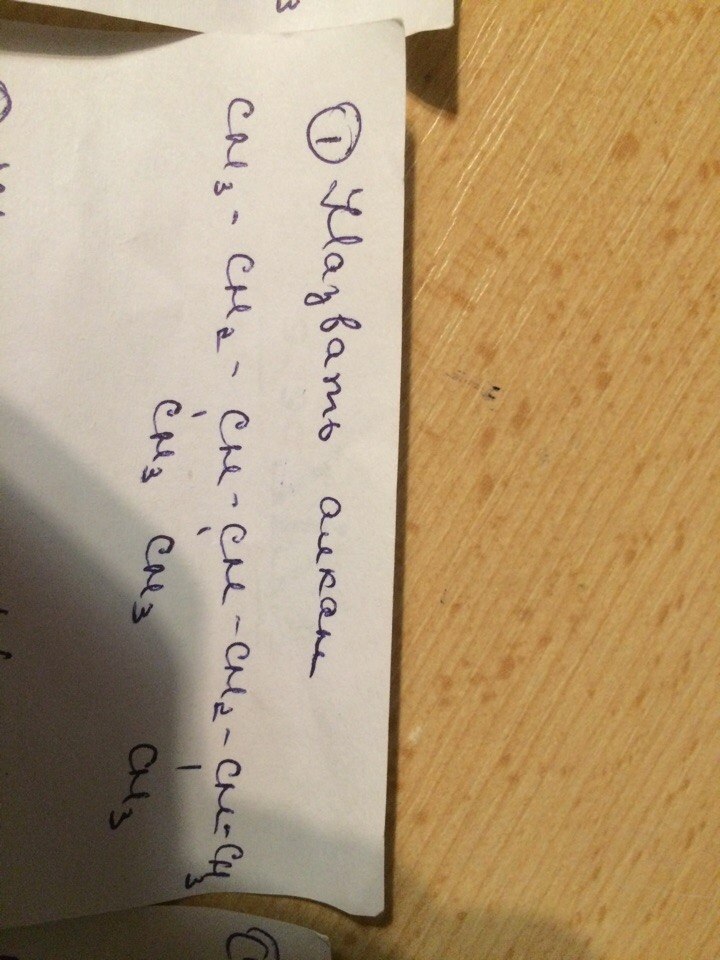 ① Назвать алкан
CH₃ - CH₂ - CH - CH - CH₂ - CH - CH₃
CH₃ CH₃ CH₃